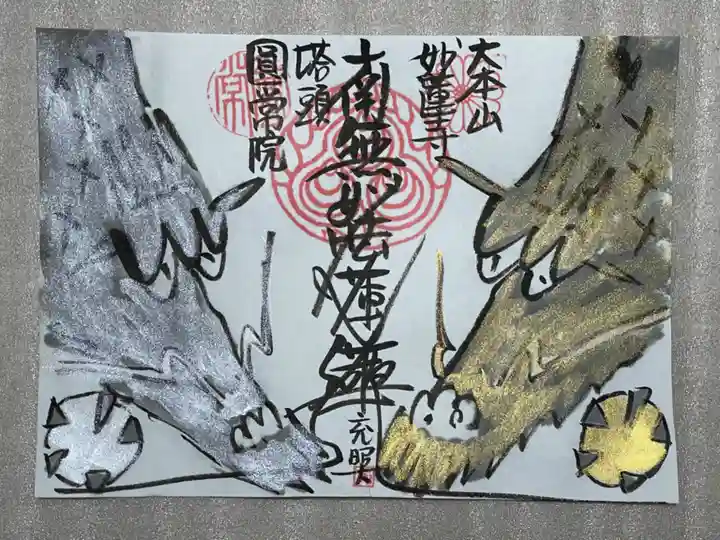 大本山
妙蓮寺
南無妙法蓮華經
塔頭
圓常院
充明